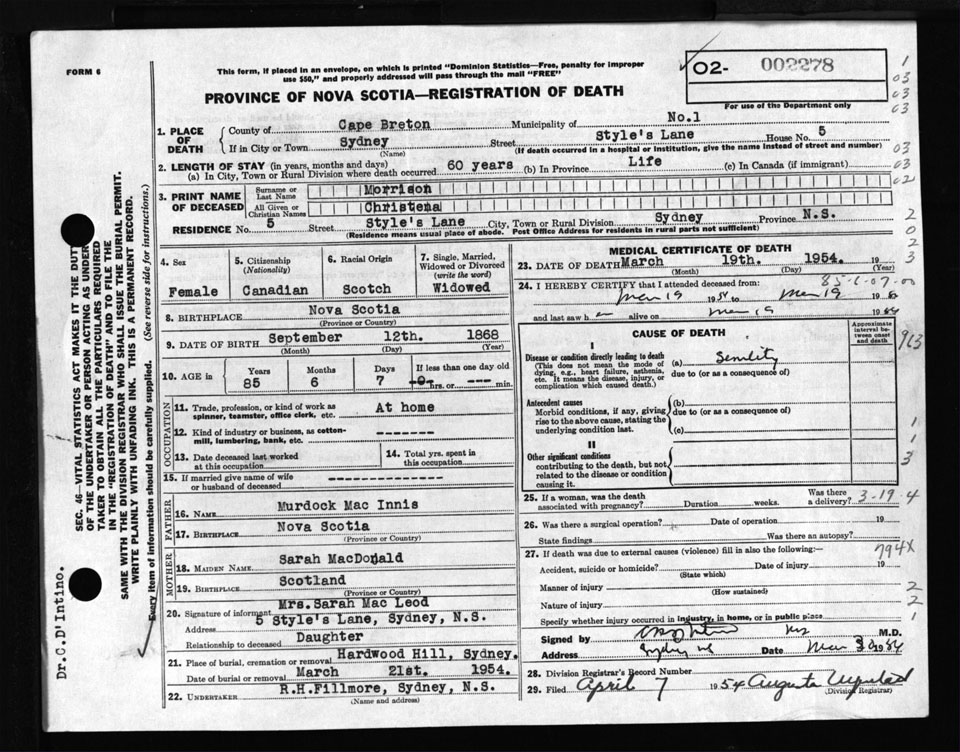 FORM 6
This form, if placed in an envelope, on which is printed "Dominion Statistics—Free, penalty for improper
use $50," and properly addressed will pass through the mail "FREE"
02- 002278
For use of the Department only
PROVINCE OF NOVA SCOTIA—REGISTRATION OF DEATH
1. PLACE OF DEATH
County of Cape Breton Municipality of No.1
If in City or Town Sydney Street Style's Lane House No. 5
(Name) (If death occurred in a hospital or institution, give the name instead of street and number)
2. LENGTH OF STAY (in years, months and days)
(a) In City, Town or Rural Division where death occurred 60 years (b) In Province Life (c) In Canada (if immigrant)
3. PRINT NAME OF DECEASED
Surname or Last Name Morrison
All Given or Christian Names Christena
RESIDENCE No. 5 Street Style's Lane City, Town or Rural Division Sydney Province N.S.
(Residence means usual place of abode. Post Office Address for residents in rural parts not sufficient)
4. Sex
Female
5. Citizenship
(Nationality)
Canadian
6. Racial Origin
Scotch
7. Single, Married,
Widowed or Divorced
(write the word)
Widowed
8. BIRTHPLACE Nova Scotia
(Province or Country)
9. DATE OF BIRTH September 12th. 1868
(Month) (Day) (Year)
10. AGE in
Years Months Days If less than one day old
85 6 7 -0- hrs. or --- min.
OCCUPATION
11. Trade, profession, or kind of work as
spinner, teamster, office clerk, etc. At home
12. Kind of industry or business, as cotton-
mill, lumbering, bank, etc. --------
13. Date deceased last worked
at this occupation
14. Total yrs. spent in
this occupation
15. If married give name of wife
or husband of deceased ----------------
FATHER
16. NAME Murdock Mac Innis
17. BIRTHPLACE Nova Scotia
(Province or Country)
MOTHER
18. MAIDEN NAME Sarah MacDonald
19. BIRTHPLACE Scotland
(Province or Country)
20. Signature of informant Mrs.Sarah Mac Leod
Address 5 Style's Lane, Sydney, N.S.
Relationship to deceased Daughter
21. Place of burial, cremation or removal Hardwood Hill, Sydney.
Date of burial or removal March 21st. 1954.
22. UNDERTAKER R.H.Fillmore, Sydney, N.S.
(Name and address)
MEDICAL CERTIFICATE OF DEATH
23. DATE OF DEATH March 19th. 1954. 19
(Month) (Day) (Year)
24. I HEREBY CERTIFY that I attended deceased from:
Mar 19 1954 to Mar 19 19
and last saw h alive on Mar 19 19
CAUSE OF DEATH
Approximate interval between onset and death
I
Disease or condition directly leading to death
(This does not mean the mode of
dying, e.g., heart failure, asthenia,
etc. It means the disease, injury, or
complication which caused death.)
(a) Senility
due to (or as a consequence of)
Antecedent causes
Morbid conditions, if any, giving
rise to the above cause, stating the
underlying condition last.
(b)
due to (or as a consequence of)
(c)
II
Other significant conditions
contributing to the death, but not
related to the disease or condition
causing it.
25. If a woman, was the death
associated with pregnancy? Duration weeks. Was there a delivery? 3-19-4
26. Was there a surgical operation? Date of operation 19
State findings Was there an autopsy?
794X
27. If death was due to external causes (violence) fill in also the following:—
Accident, suicide or homicide? Date of injury 19
(State which)
Manner of injury
(How sustained)
Nature of injury
Specify whether injury occurred in industry, in home, or in public place
Signed by M.D.
Address Sydney NS Date Mar
28. Division Registrar's Record Number
29. Filed April 7 1954 Augusta
(Division Registrar)
SEC. 46—VITAL STATISTICS ACT MAKES IT THE DUTY
OF THE UNDERTAKER OR PERSON ACTING AS UNDER-
TAKER TO OBTAIN ALL THE PARTICULARS REQUIRED
IN THE "REGISTRATION OF DEATH" AND TO FILE THE
SAME WITH THE DIVISION REGISTRAR WHO SHALL ISSUE THE BURIAL PERMIT.
WRITE PLAINLY WITH UNFADING INK. THIS IS A PERMANENT RECORD.
Every item of information should be carefully supplied. (See reverse side for instructions.)
Dr.C.D'Intino.
1
03
03
03
03
03
02
2
0
2
3
963
1
1
3
2
2
1